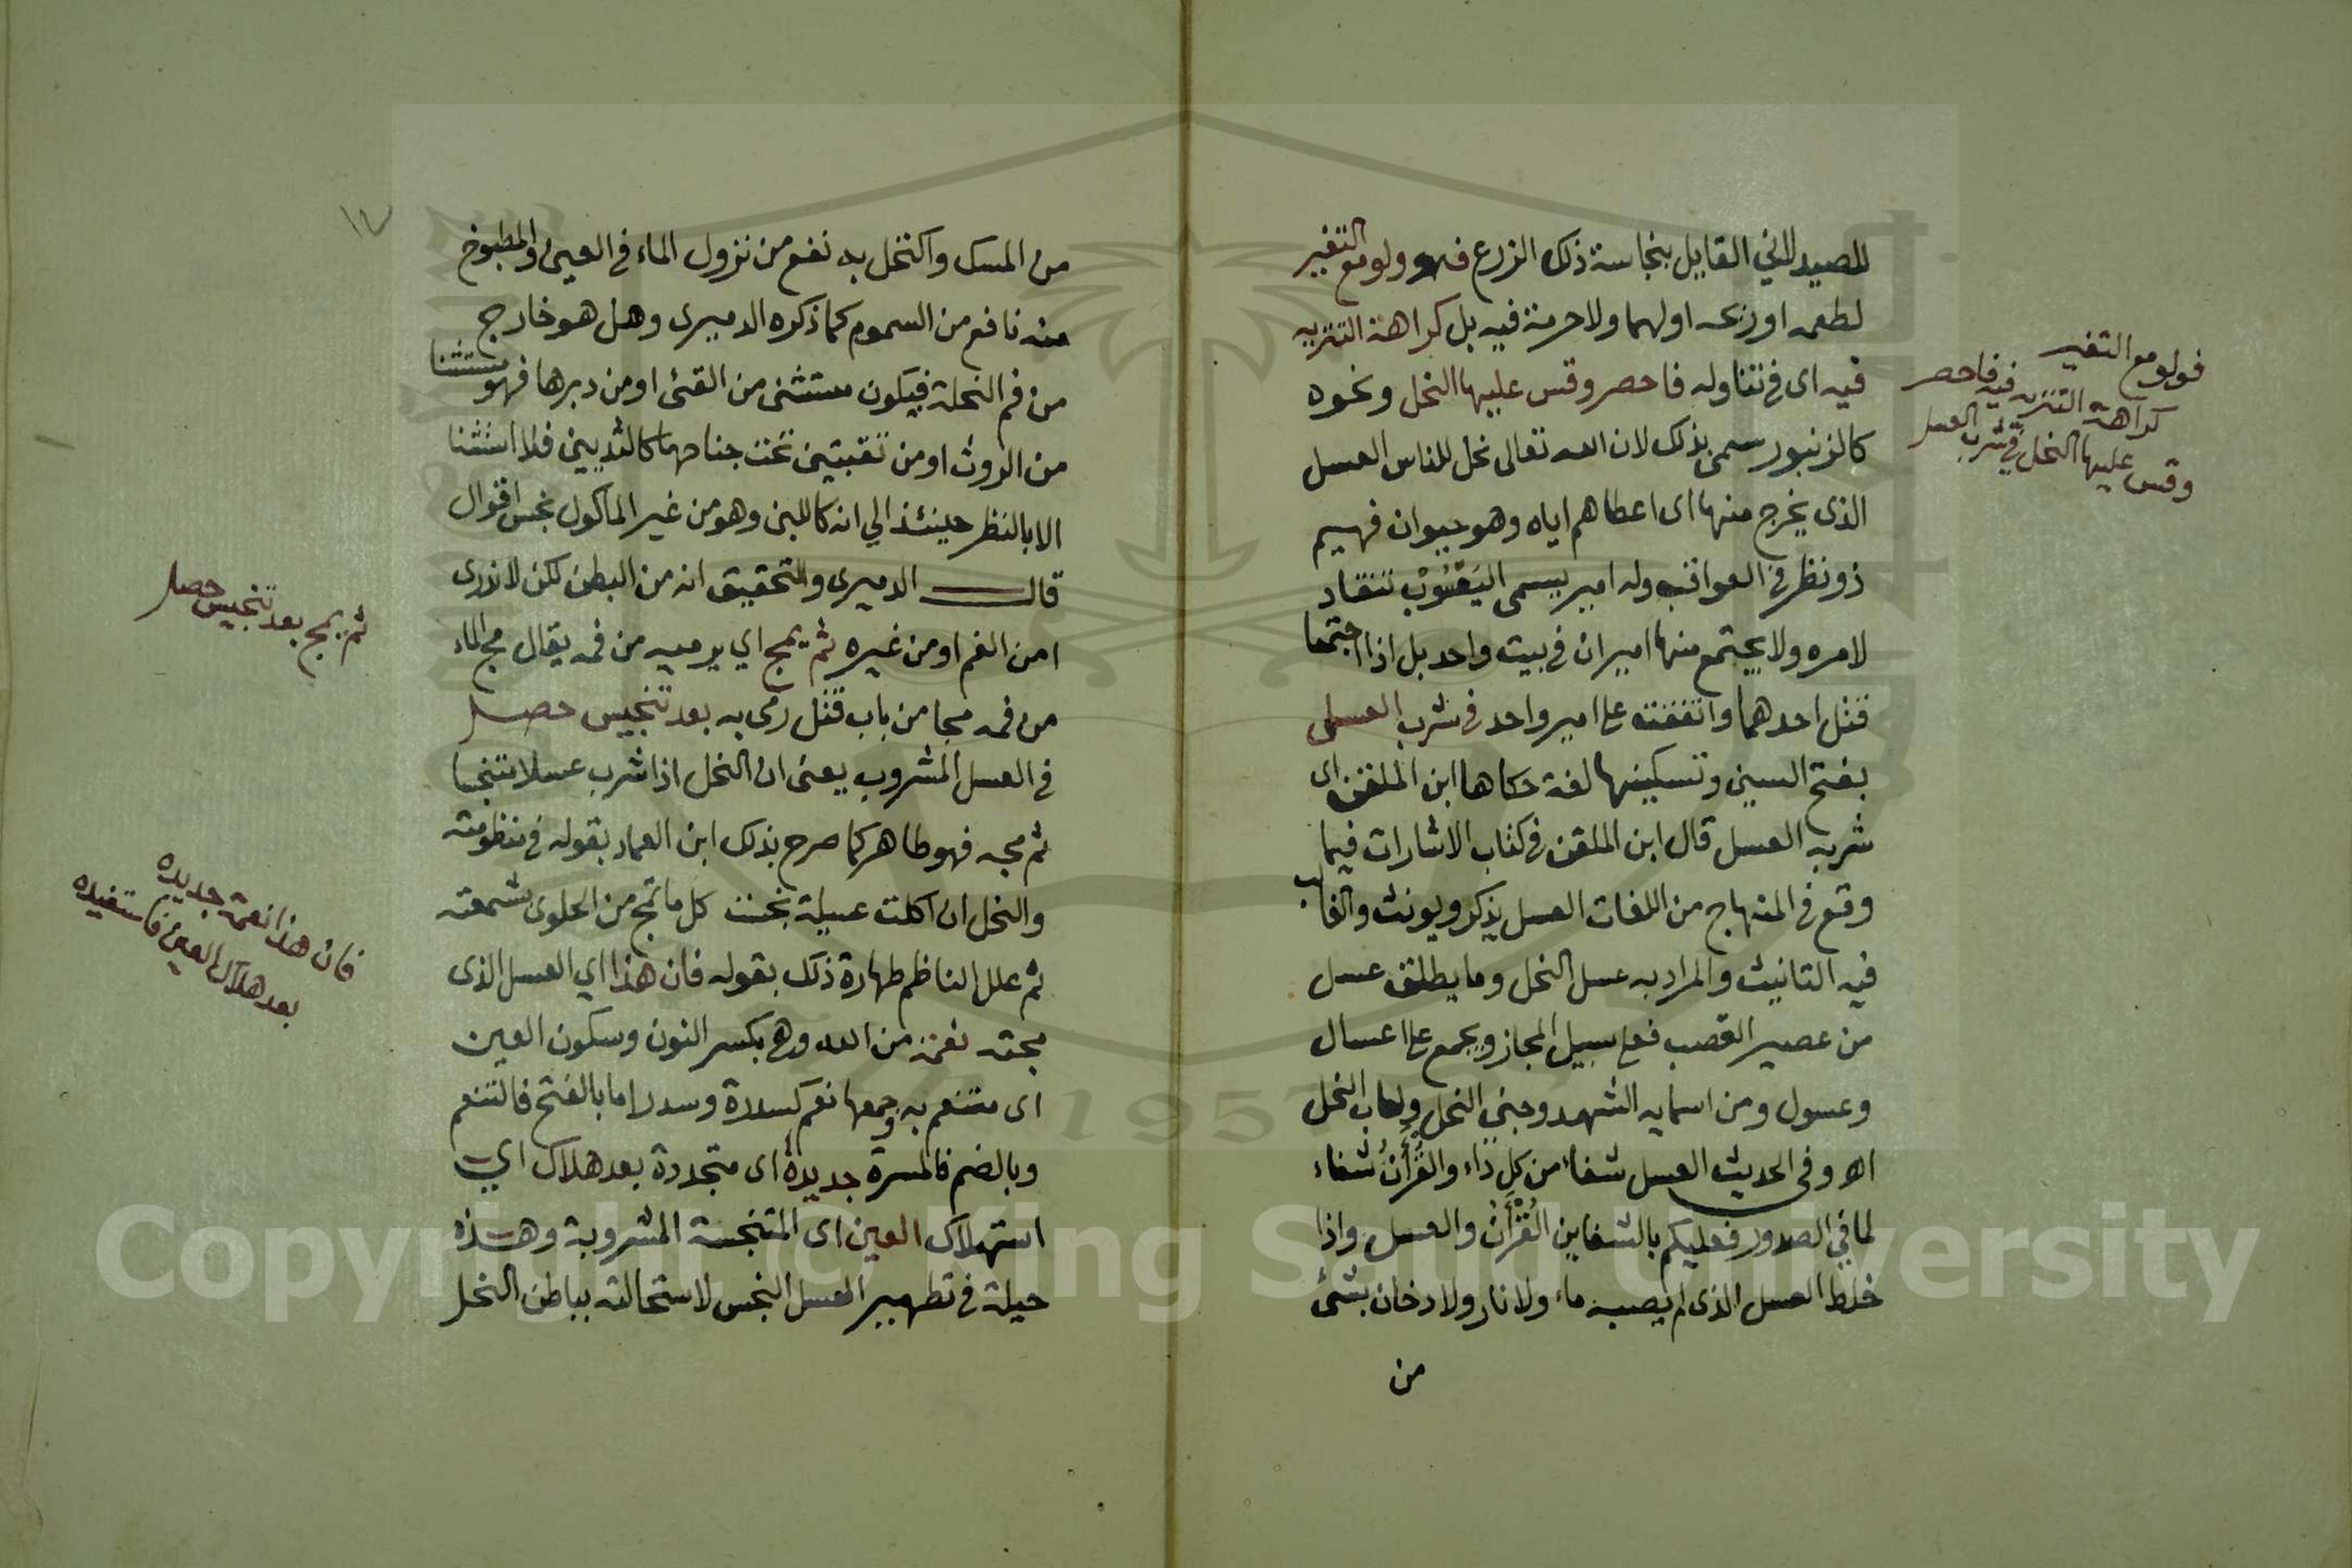 للصيد للاني القايل بنجاسة ذلك الزرع فهو ولو مع التغير
لطعمه او ريحه اولهما ولا حرمة فيه بل كراهة التنزيه
فيه اى فى تناوله فاحصر وقس عليها النحل ونحوه
كالزنبور سمى بذلك لان الله تعالى نحل للناس العسل
الذى يخرج منها اى اعطاهم اياه وهو حيوان فهيم
ذو نظر فى العواقب وله امير يسمى اليَعْسُوْب تنقاد
لامره ولا يجتمع منها اميران فى بيت واحد بل اذا اجتمعا
قتل احدهما واتفقته على امير واحد فى شرب العسل
بفتح السين وتسكينها لغة حكاها ابن الملقن اى
شربه العسل قال ابن الملقن فى كتاب الاشارات فيما
وقع فى المنهاج من اللغات العسل يذكر ويونث والغالب
فيه التانيث والمراد به عسل النحل وما يطلق عسل
من عصير القصب فعلى سبيل المجاز ويجمع على اعسال
وعسول ومن اسمايه الشهد وجنى النحل ولعاب النحل
اه وفى الحديث العسل شفاء من كل داء والقُرْأَنُ شفاء
لما في الصدور فعليكم بالشفاين القُرْأَنُ والعسل واذا
خلط العسل الذى لم يصبه ماء ولا نار ولا دخان بشئ
من
فولو مع التغير
كراهة التنزيه فيه فاحصر
وقس عليها النحل فى شرب العسل
١٧
من المسك واكتحل به نفع من نزول الماء فى العين والمطبوخ
منه نافع من السموم كما ذكره الدميرى وهل هو خارج
من فم النحلة فيكون مستثنى من القئ او من دبرها فهو مستثنا
من الروث او من ثقبتين تحت جناحها كالثديين فلا استثنا
الا بالنظر حينئذ الي انه كاللبن وهو من غير الماكول نجس اقوال
قال الدميرى والتحقيق انه من البطن لكن لا ندرى
امن الفم او من غيره ثم يمج اي يرميه من فمه يقال مج الماء
من فمه مجا من باب قتل رمى به بعد تنجيس حصل
فى العسل المشروب يعنى ان النحل اذا شرب عسلا متنجسا
ثم مجه فهو طاهر كما صرح بذلك ابن العماد بقوله فى منظومته
والنحل ان اكلت عسيلة نجست كل ما تمج من الحلوى بشمعته
ثم علل الناظم طهارة ذلك بقوله فان هذا اي العسل الذى
مجته نعمة من الله وهى بكسر النون وسكون العين
اى متنعم به وجمعها نعم كسدرة وسدر اما بالفتح فالتنعم
وبالضم فالمسرة جديدة اى متجددة بعد هلاك اي
استهلاك العين اى المتنجسة المشروبة وهذه
حيلة فى تطهير العسل النجس لاستحالته بباطن النحل
ثم يمج بعد تنجيس حصل
فان هذا نعمة جديده
بعد هلاك العين فاستفيده
Copyright © King Saud University
1957